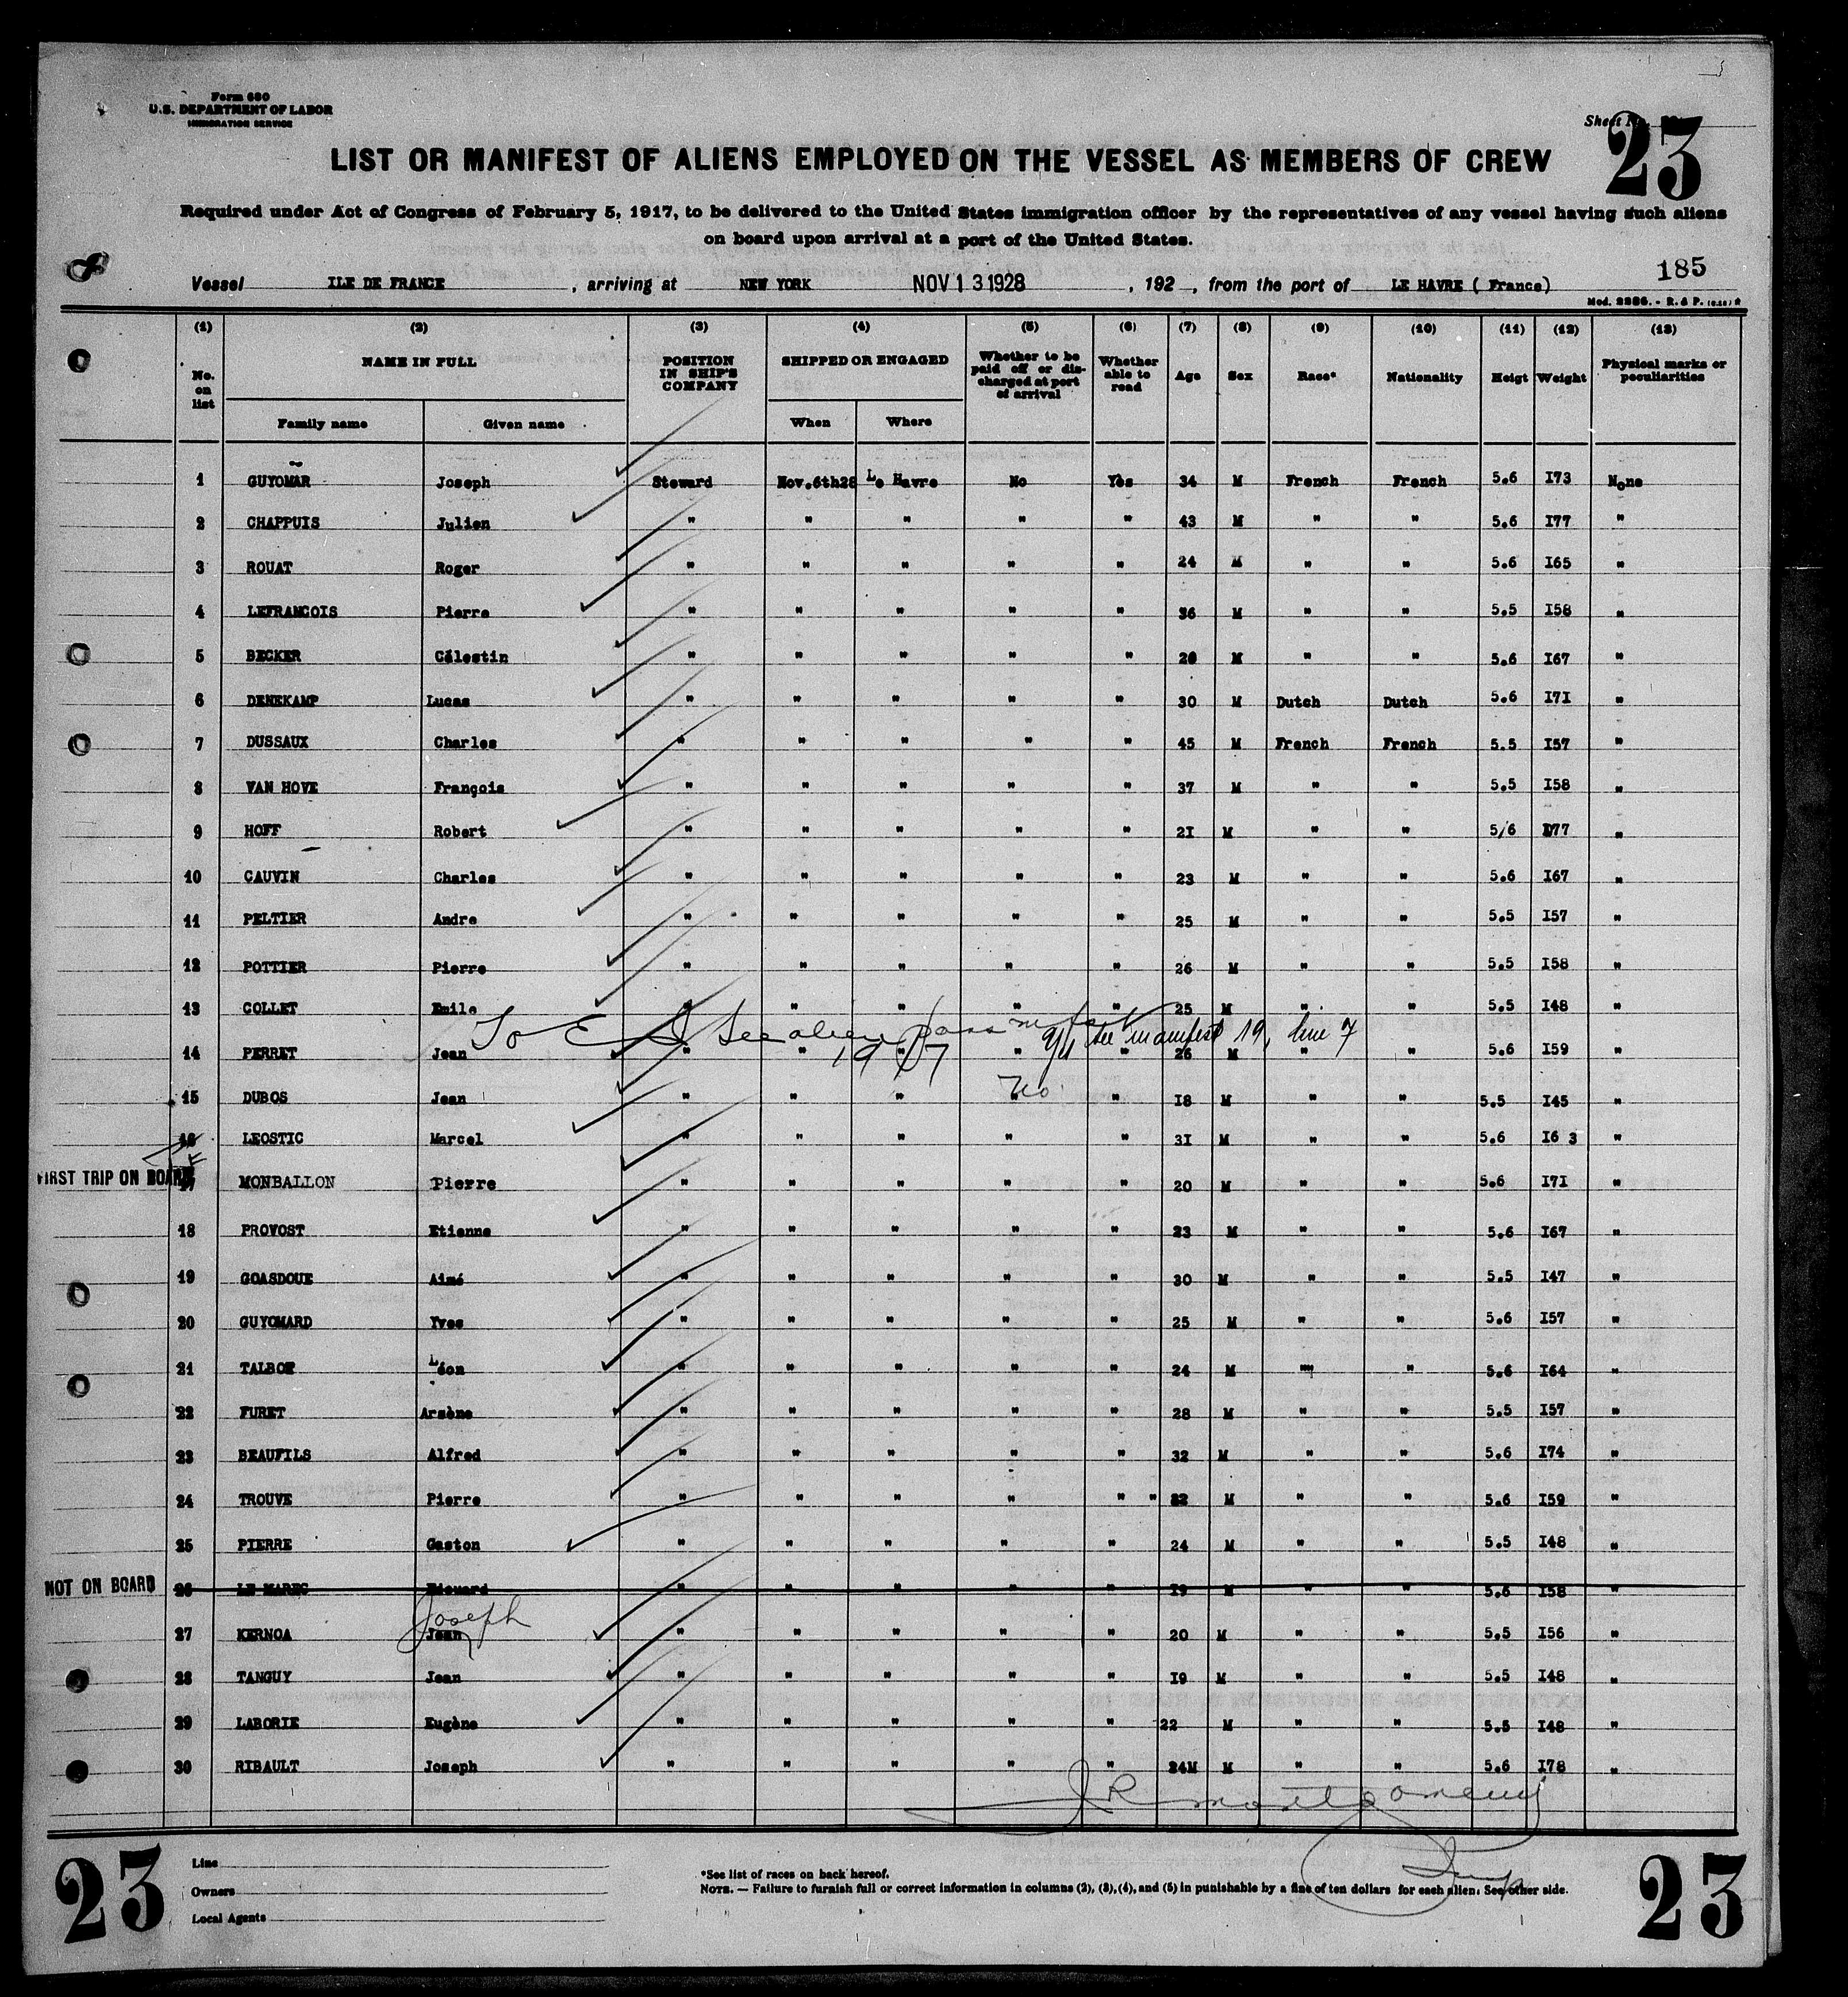 Form 680
U.S. DEPARTMENT OF LABOR
IMMIGRATION SERVICE
Sheet No.
23
LIST OR MANIFEST OF ALIENS EMPLOYED ON THE VESSEL AS MEMBERS OF CREW
Required under Act of Congress of February 5, 1917, to be delivered to the United States immigration officer by the representatives of any vessel having such aliens
on board upon arrival at a port of the United States.
185
Vessel ILE DE FRANCE , arriving at NEW YORK NOV 13 1928 , 192 , from the port of LE HAVRE ( France)
Mod. 2286. - R. & P.
(1) (2) (3) (4) (5) (6) (7) (8) (9) (10) (11) (12) (13)
No. on list NAME IN FULL POSITION IN SHIP'S COMPANY SHIPPED OR ENGAGED Whether to be paid off or discharged at port of arrival Whether able to read Age Sex Race* Nationality Heigt Weight Physical marks or peculiarities
Family name Given name When Where
1 GUYOMAR Joseph Steward Nov.6th28 Le Havre No Yès 34 M French French 5.6 I73 None
2 CHAPPUIS Julien " " " " " 43 M " " 5.6 I77 "
3 ROUAT Roger " " " " " 24 M " " 5.6 I65 "
4 LEFRANCOIS Pierre " " " " " 36 M " " 5.5 I58 "
5 BECKER Célestin " " " " " M " " 5.6 I67 "
6 DENEKAMP Lucas " " " " " 30 M Dutch Dutch 5.6 I7I "
7 DUSSAUX Charles " " " " " 45 M French French 5.5 I57 "
8 VAN HOVE François " " " " " 37 M " " 5.5 I58 "
9 HOFF Robert " " " " " 2I M " " 5/6 I77 "
10 CAUVIN Charles " " " " " 23 M " " 5.6 I67 "
11 PELTIER Andre " " " " " 25 M " " 5.5 I57 "
12 POTTIER Pierre " " " " " 26 M " " 5.5 I58 "
13 COLLET Emile " " " " " 25 M " " 5.5 I48 "
To see alien 9/4 see manifest 19, line 7
14 PERRET Jean " " " " 26 M " " 5.6 I59 "
No
15 DUBOS Jean " " " " " I8 M " " 5.5 I45 "
16 LEOSTIC Marcel " " " " " 3I M " " 5.6 I6 3 "
FIRST TRIP ON BOARD 17 MONBALLON Pierre " " " " " 20 M " " 5.6 I7I "
18 PROVOST Etienne " " " " " 23 M " " 5.6 I67 "
19 GOASDOUE Aimé " " " " " 30 M " " 5.5 I47 "
20 GUYOMARD Yves " " " " " 25 M " " 5.6 I57 "
21 TALBOT Léon " " " " " 24 M " " 5.6 I64 "
22 FURET Arsène " " " " " 28 M " " 5.5 I57 "
23 BEAUFILS Alfred " " " " " 32 M " " 5.6 I74 "
24 TROUVE Pierre " " " " " " 22 M " " 5.6 I59 "
25 PIERRE Gaston " " " " " 24 M " " 5.5 I48 "
NOT ON BOARD 26 LE MAREC Edouard " " " " " I9 M " " 5.6 I58 "
Joseph
27 KERNOA Jean " " " " " 20 M " " 5.5 I56 "
28 TANGUY Jean " " " " " I9 M " " 5.5 I48 "
29 LABORIE Eugène " " " " " 22 M " " 5.5 I48 "
30 RIBAULT Joseph " " " " " 24M M " " 5.6 I78 "
J R Montgomery
Insp
23
Line
Owners
Local Agents
*See list of races on back hereof.
NOTE. — Failure to furnish full or correct information in columns (2), (3), (4), and (5) in punishable by a fine of ten dollars for each alien. See other side.
23